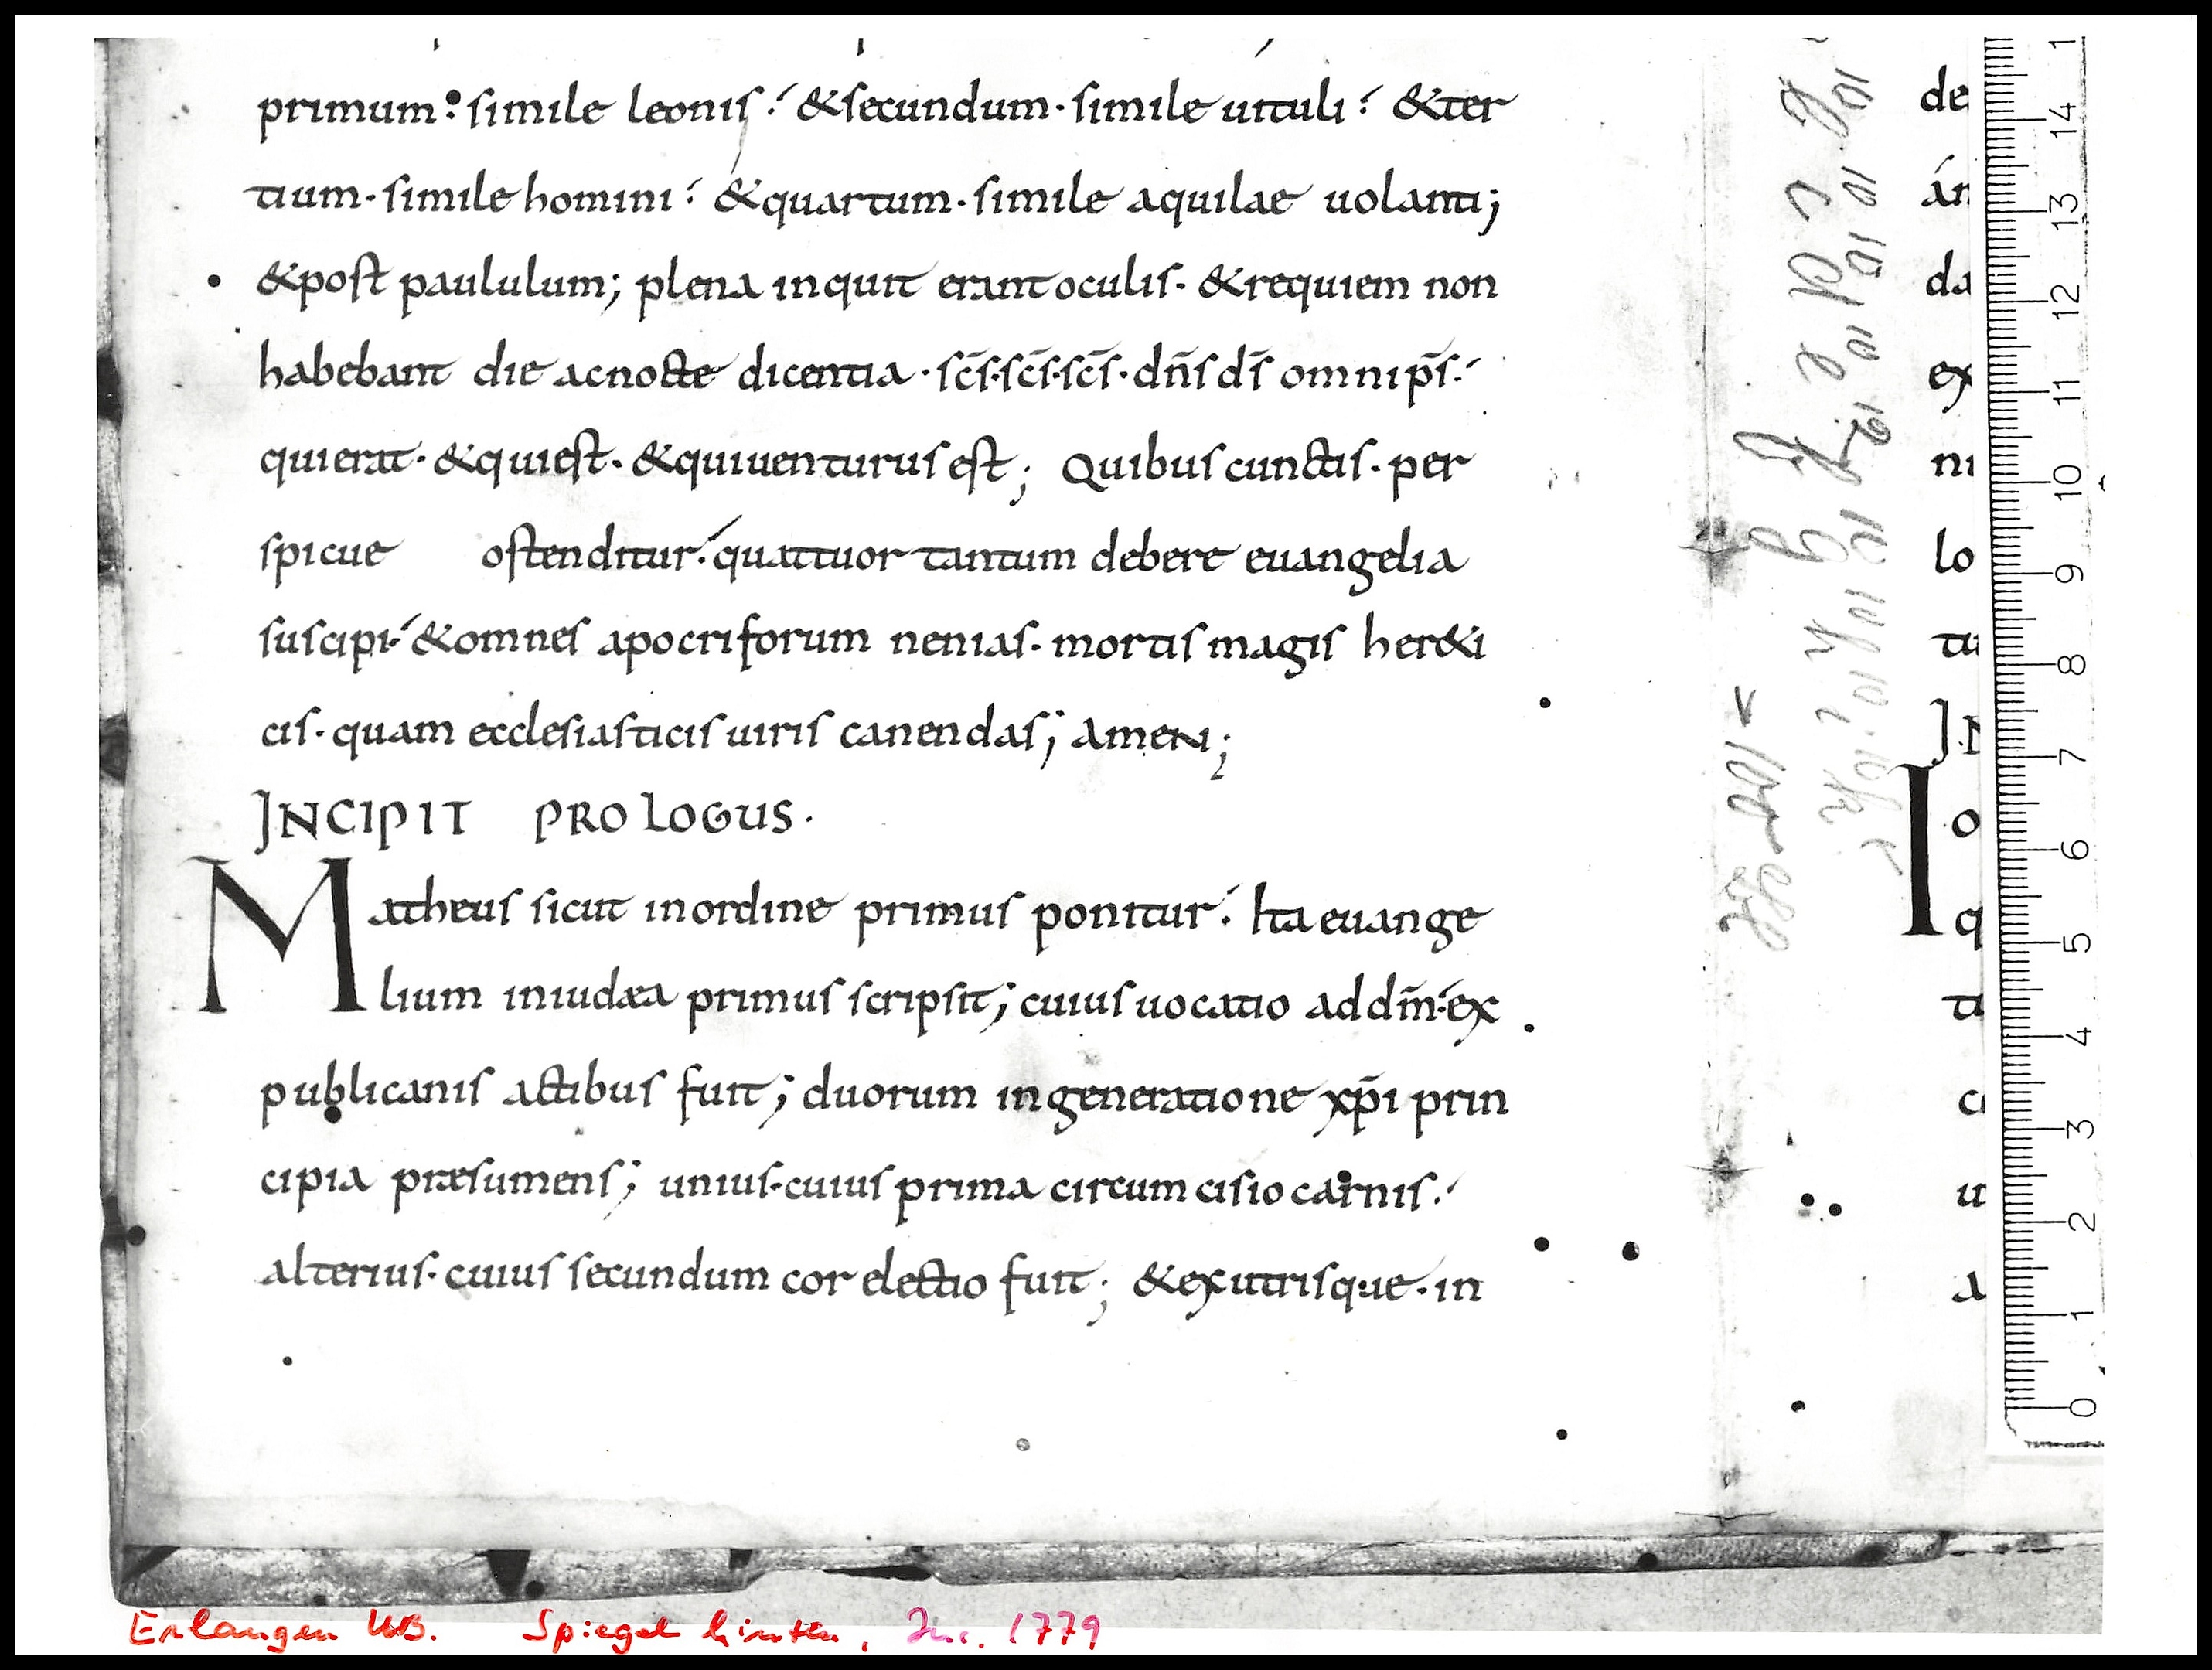 primum· simile leonis·́ &secundum· simile uituli·́ &ter
tium· simile homini·́ &quartum· simile aquilae uolanti;
&post paululum; plena inquit erant oculis· &requiem non
habebant die ac nocte dicentia· sc̄s·sc̄s·sc̄s· dn̄s ds̄ omnip̄s·́
qui erat· &qui est· &qui uenturus est; Quibus cunctis· per
spicue ostenditur·́ quattuor tantum debere euangelia
suscipi·́ &omnes apocriforum nenias· mortis magis her&i
cis· quam ecclesiasticis uiris canendas; amen;
INCIPIT PROLOGUS·
Matheus sicut in ordine primus ponitur·́ Ita euange
lium in iudæa primus scripsit; cuius uocatio ad dm̄·́ ex
publicanis actibus fuit; duorum in generatione xp̄i prin
cipia præsumens; unius· cuius prima circumcisio carnis·́
alterius· cuius secundum cor electio fuit; &ex utrisque· in
de
án
da
ex
ni
lo
tu
IN
I o
q
ti
ci
u
a
0 1 2 3 4 5 6 7 8 9 10 11 12 13 14 1
Erlangen UB. Spiegel hinten, Inc. 1779